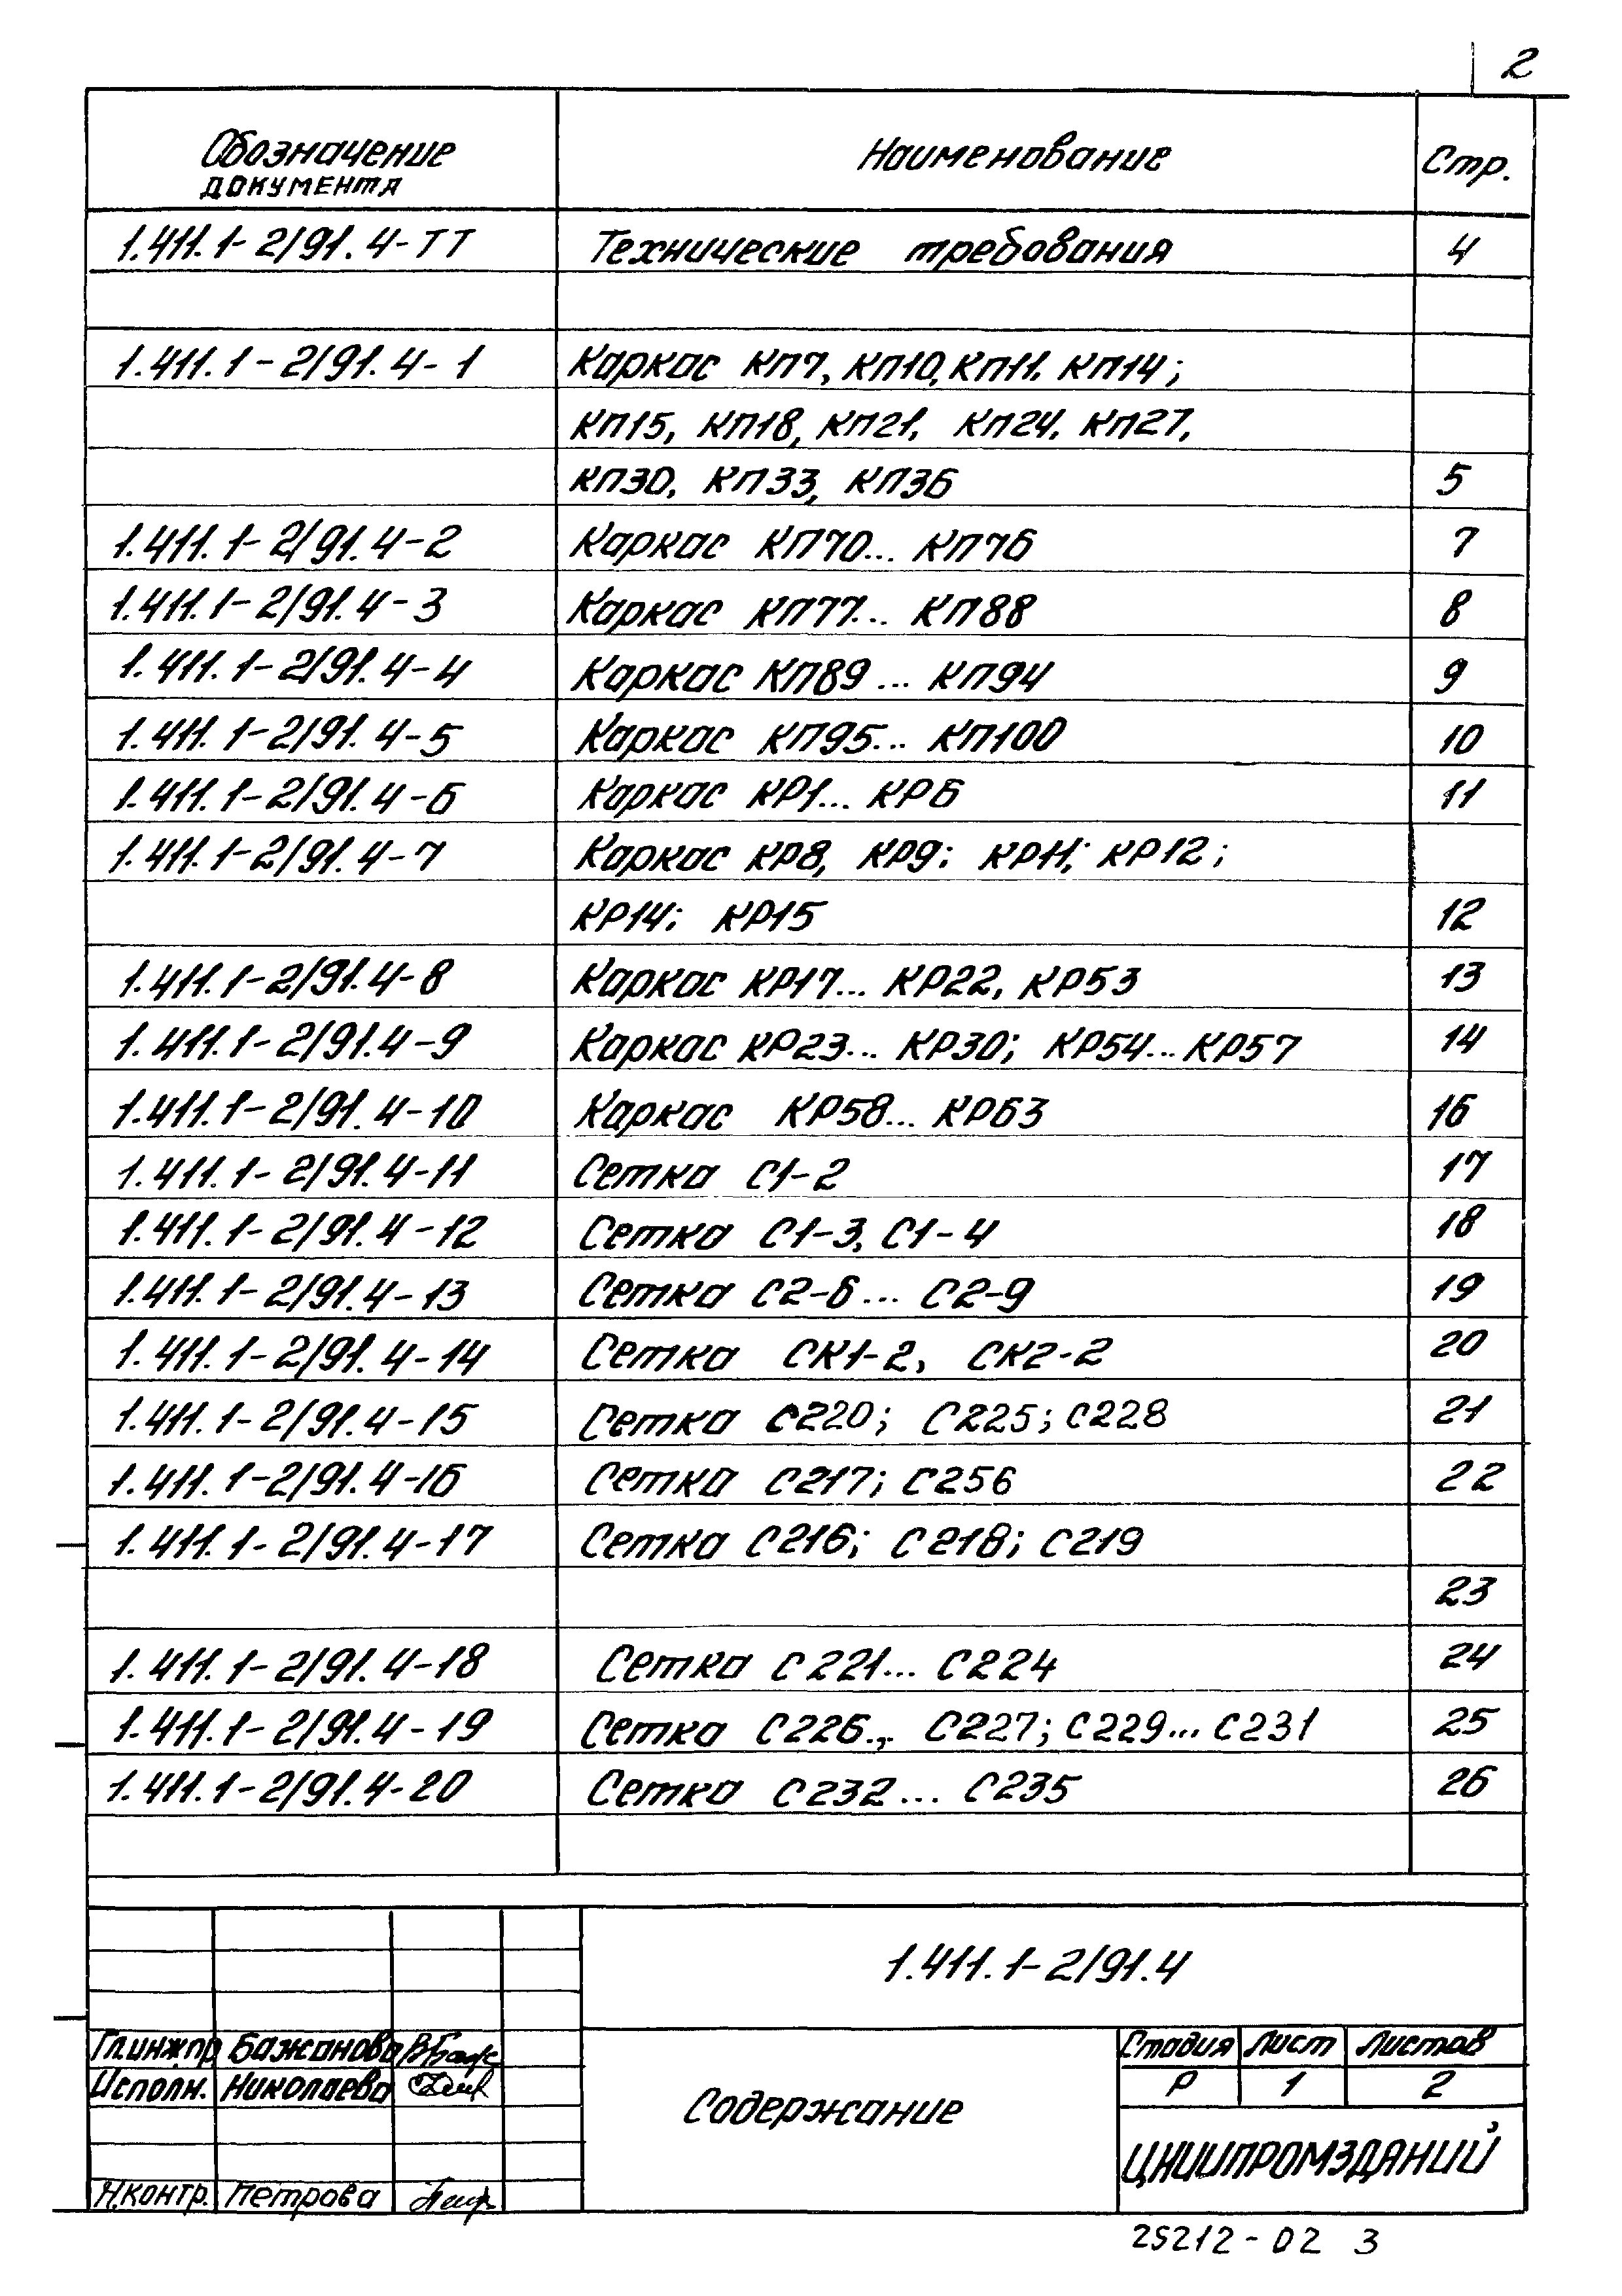 2
Обозначение документа Наименование Стр.
1.411.1-2/91.4-ТТ Технические требования 4
1.411.1-2/91.4-1 Каркас КП7, КП10, КП11, КП14;
КП15, КП18, КП21, КП24, КП27,
КП30, КП33, КП36 5
1.411.1-2/91.4-2 Каркас КП70... КП76 7
1.411.1-2/91.4-3 Каркас КП77... КП88 8
1.411.1-2/91.4-4 Каркас КП89... КП94 9
1.411.1-2/91.4-5 Каркас КП95... КП100 10
1.411.1-2/91.4-6 Каркас КР1... КР6 11
1.411.1-2/91.4-7 Каркас КР8, КР9; КР11; КР12;
КР14; КР15 12
1.411.1-2/91.4-8 Каркас КР17... КР22, КР53 13
1.411.1-2/91.4-9 Каркас КР23... КР30; КР54... КР57 14
1.411.1-2/91.4-10 Каркас КР58... КР63 16
1.411.1-2/91.4-11 Сетка С1-2 17
1.411.1-2/91.4-12 Сетка С1-3, С1-4 18
1.411.1-2/91.4-13 Сетка С2-6... С2-9 19
1.411.1-2/91.4-14 Сетка СК1-2, СК2-2 20
1.411.1-2/91.4-15 Сетка С220; С225; С228 21
1.411.1-2/91.4-16 Сетка С217; С256 22
1.411.1-2/91.4-17 Сетка С216; С218; С219
23
1.411.1-2/91.4-18 Сетка С221... С224 24
1.411.1-2/91.4-19 Сетка С226., С227; С229... С231 25
1.411.1-2/91.4-20 Сетка С232... С235 26
1.411.1-2/91.4
Гл.инж.пр Бажанова
Исполн. Николаева
Н.контр. Петрова
Содержание
Стадия Лист Листов
Р 1 2
ЦНИИПРОМЗДАНИЙ
25212-02 3